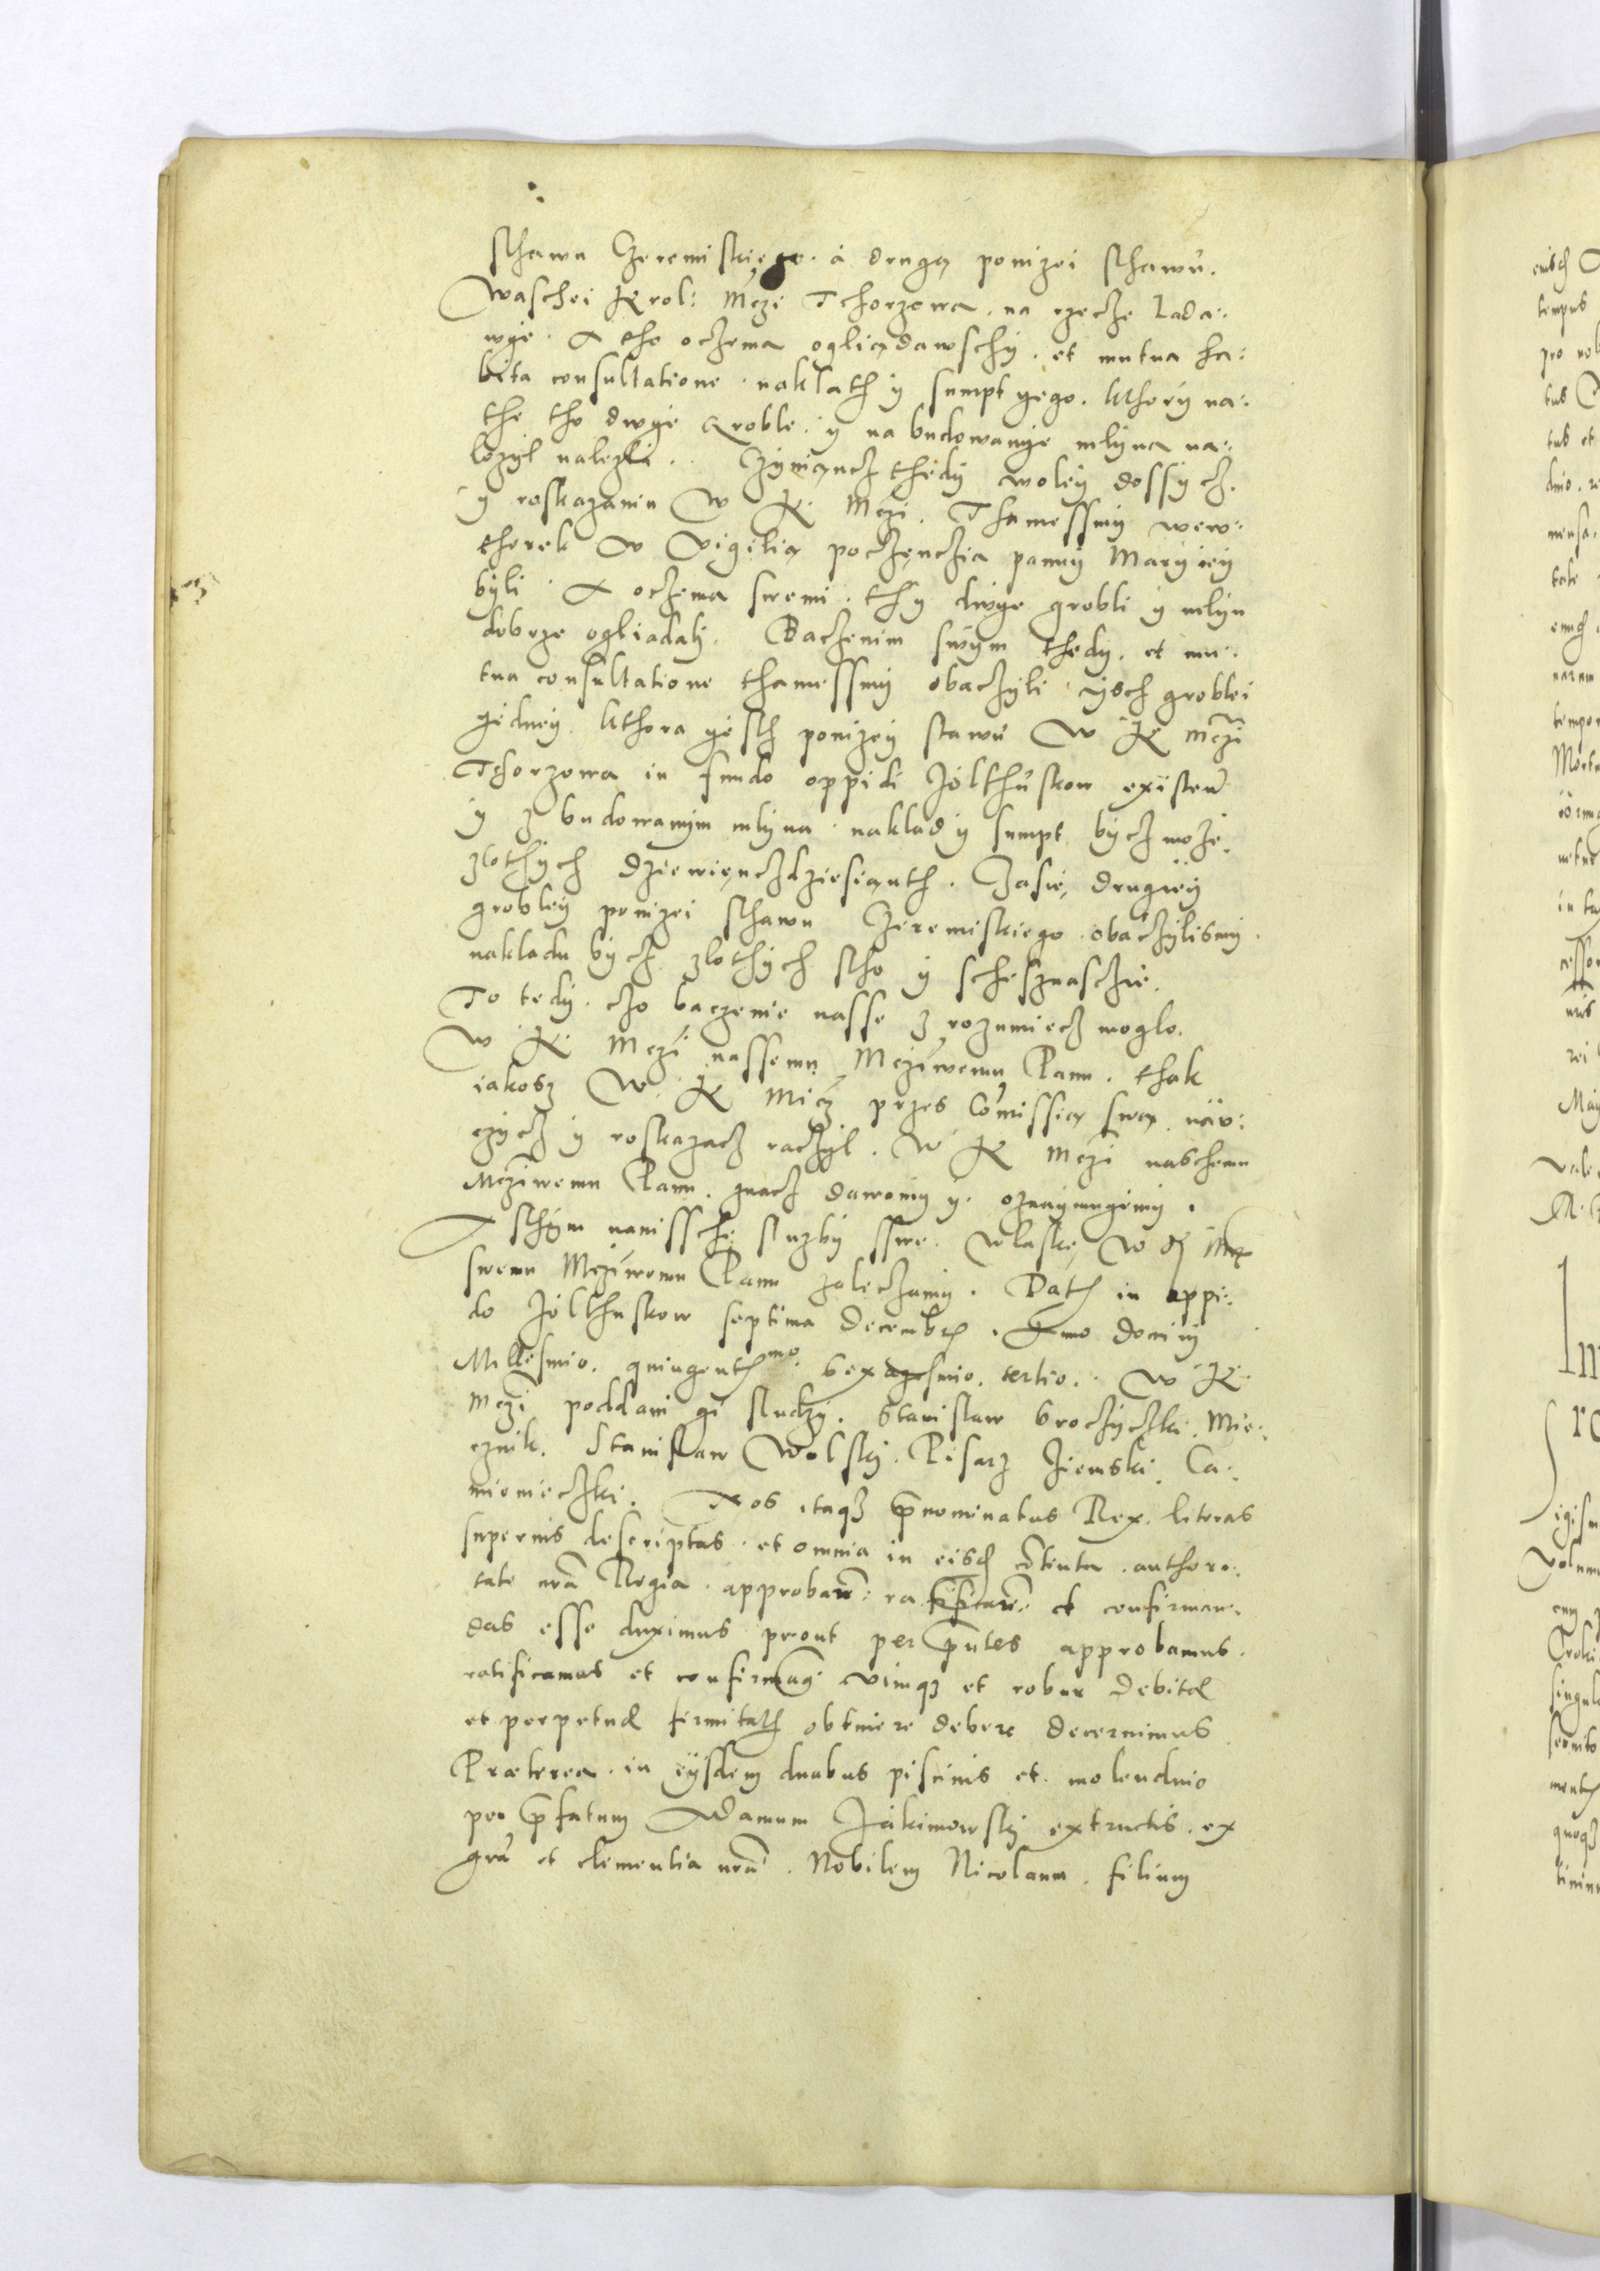 sthawu Czeremiskiego. á drugą ponizei sthawú.
Waschei Krol: Mczi Tchorzowa. na rzecze Lada:
wye. A tho oczema ogliądawschÿ. et mutua ha:
bita consultatione. naklath ÿ sumpt yego. kthorÿ na:
the tho dwÿe Groble. ÿ na budowanÿe mlÿna na:
lozÿl nalezli. Czÿniąncz thedÿ wolieÿ dossÿcz.
ÿ roskazaniu W K. Mczi. Thamessmÿ wew:
thorek W Vigilią poczenczia pannÿ Marÿieÿ
bÿli. A oczema swemi. thÿ dwÿe grobli ÿ mlÿn
dobrze ogliadali. Baczenim swÿm thedÿ. et mu:
tua consultatione thamessmÿ obaczÿli ÿsch groblei
ÿedneÿ. kthora ÿesth ponizeÿ stawú W K Mczi
Tchorzowa in fundo oppidi Jólthúskow existen
ÿ z budowanÿm mlÿna. naklad ÿ sumpt bÿcz może.
zlothÿch dziewiencżdziesianth. Zasię drugieÿ
grobleÿ ponizei sthawu Czeremiskiego. obaczÿlismÿ.
nakladu bÿcz zlothÿch stho ÿ schesznasczie.
To tedÿ. czo baczenie nasse z rozumiecz moglo.
W K Mczi nassemu Mcziwemu Panu. thak
iakosz W K Micz przes Comissią swą. náv:
czÿcz ÿ roskazacz raczÿl. W K Mczi naschemu
Mcziwemu Panu. znacz dawamÿ ÿ. oznaÿmuÿemÿ.
A sthÿm nanissche sluzbÿ sswe. Wlaskę W K Mcz
swemu Mcziwemu Panu zaleczamÿ. Dat in oppi:
do Jólthuskow septima Decembr. Anno domini
Millesimo. quingent mo. sexagesimo. tertio. W K
Mczi poddani ÿ sludzÿ. Stanislaw Broczÿczki. Mie:
cznik. Stanislaw Wolskÿ. Pisarz Ziemski. Ca:
mionieczki. Nos itaqз pnominatus Rex. literas
supernis descriptas. et omnia in eisd cotenta. authori:
tate nra Regia. approban: ratifican: et confirman:
das esse duximus prout per pntes approbamus.
ratificamus et confirmam. vimqз et robur debitae
et perpetuae firmitatis obtinere debere decernimus
Praeterea. in eÿsdem duabus piscinis et. molendino
per pfatum Adamum Jakimowskÿ extructis. ex
gra et clementia nra. Nobilem Nicolaum. filium